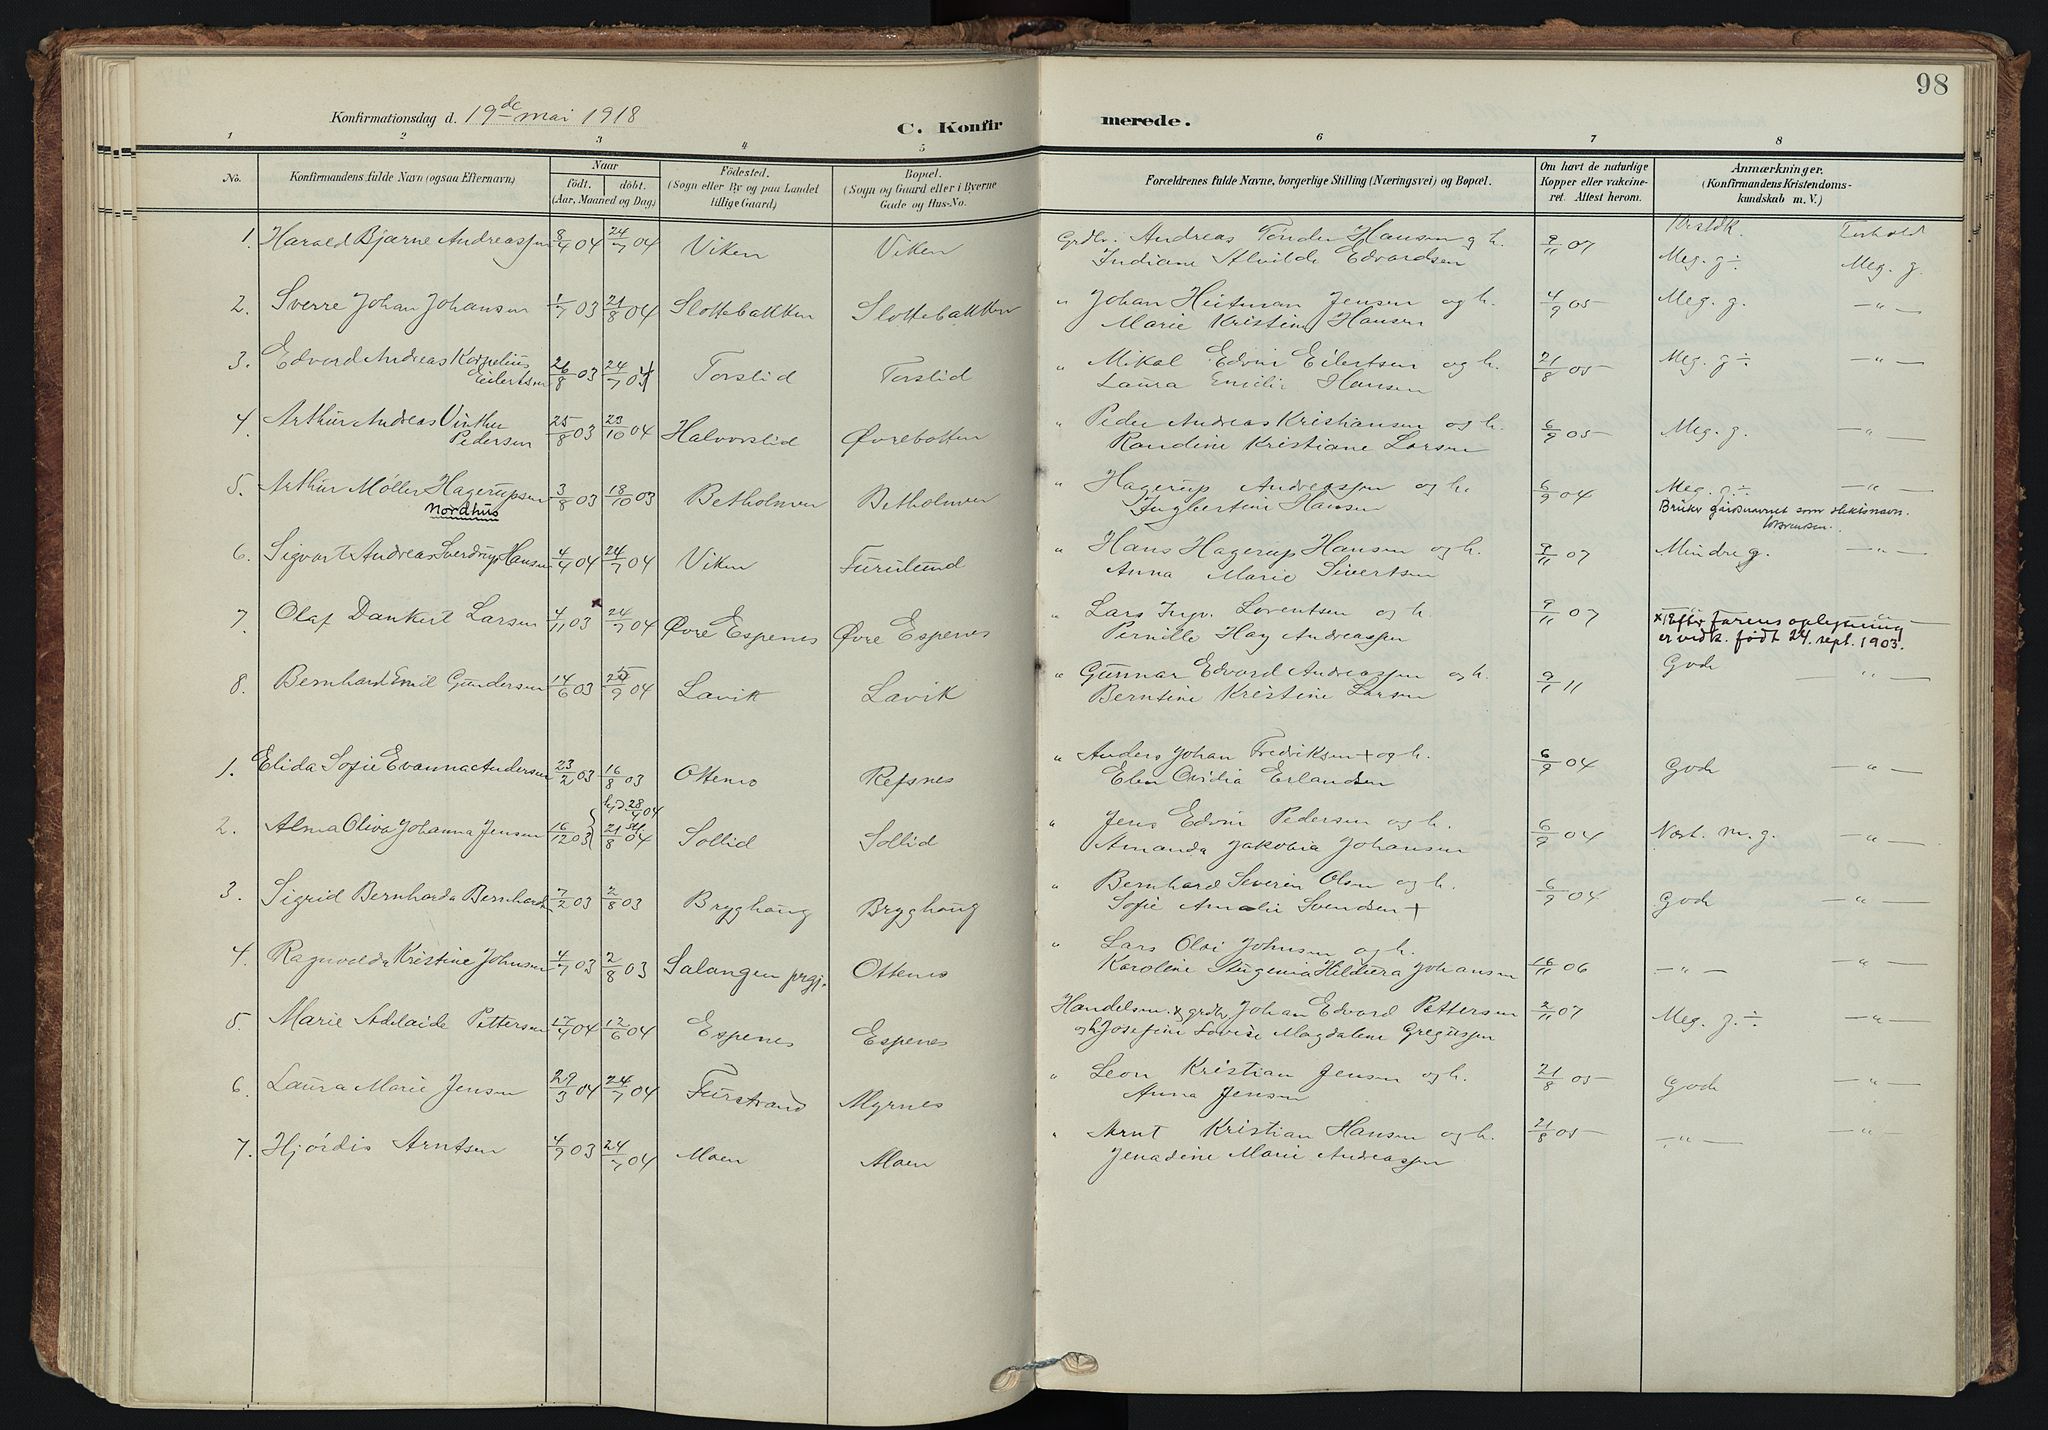 98
Konfirmationsdag d. 19de mai 1918
C. Konfirmerede.
1 2 3 4 5 6 7 8
No. Konfirmandens fulde Navn (ogsaa Efternavn) Naar født. døbt. (Aar, Maaned og Dag) Fødested. (Sogn eller By og paa Landet tillige Gaard) Bopæl. (Sogn og Gaard eller i Byerne Gade og Hus-No. Forældrenes fulde Navne, borgerlige Stilling (Næringsvei) og Bopæl. Om havt de naturlige Kopper eller vakcineret. Attest herom. Anmærkninger. (Konfirmandens Kristendomskundskab m. V.)
Kristdk. Forhold
1. Harald Bjarne Andreassen 8/4 04 24/7 04 Viken Viken Grdbr. Andreas Tønder Hansen og h. 9/11 07 Meg. g ÷ Meg. g.
Indiane Alvilde Edvardsen
2. Sverre Johan Johansen 1/7 03 21/8 04 Slottebakken Slottebakken " Johan Heitman Jensen og h. 4/9 05 Meg. g. — " —
Marie Kristine Hansen
3. Edvard Andreas Kornelius 26/8 03 24/7 04 Torslid Torslid " Mikal Edvin Eilertsen og h. 21/8 05 Meg. g ÷ — " —
Eilertsen Laura Emilie Hansen
4. Arthur Andreas Vinther 25/8 03 23/10 04 Halvorslid Øvrebotten " Peder Andreas Kristiansen og h. 6/9 05 Meg. g. — " —
Pedersen Randine Kristiane Larsen
5. Arthur Møller Hagerupsen 3/8 03 18/10 03 Betholmen Betholmen " Hagerup Andreassen og h. 6/9 04 Meg. g ÷ — " —
Nordhus Ingbertine Hansen Bruker gårdsnavnet som slektsnavn.
6. Sigvart Andreas Sverdrup Hansen 4/4 04 24/7 04 Viken Furulund " Hans Hagerup Hansen og h. 9/11 07 Mindre g. — " —
Anna Marie Sivertsen
7. Olaf Dankert Larsen 4/11 03 x 24/7 04 Øvre Espenes Øvre Espenes " Lars Ingv. Lorentsen og h. 9/11 07 x) Efter farens oplysning
Pernille Hay Andreassen er vedk. født 24. sept. 1903.
8. Bernhard Emil Gundersen 14/6 03 25/9 04 Lavik Lavik " Gunnar Edvard Andreassen og h. 9/1 11 Godt — " —
Berntine Kristine Larsen
1. Elida Sofie Evanna Andersen 23/2 03 16/8 03 Ottenes Refsnes " Anders Johan Fredriksen + og h. 6/9 04 Godt — " —
Elen Ovidia Erlandsen
2. Alma Oliva Johanna Jensen 16/12 03 hj.d. 28/4 04 21/8 04 Sollid Sollid " Jens Edvin Pedersen og h. 6/9 04 Næst. m. g. — " —
Amanda Jakobia Johansen
3. Sigrid Bernharda Bernhards. 7/2 03 2/8 03 Bryghaug Bryghaug " Bernhard Severin Olsen og h. 6/9 04 Godt — " —
Sofie Amalie Svendsen +
4. Ragnvalda Kristine Johnsen 4/7 03 2/8 03 Salangen prgj. Ottenes " Lars Olai Johnsen og h. 16/11 06 — " — — " —
Karoline Hildera Johansen
5. Marie Adelaide Pettersen 17/4 04 12/6 04 Espenes Espenes Handelsm. & grdbr. Johan Edvard Pettersen 2/11 07 Meg. g. ÷ — " —
og h. Josefine Lovise Magdalene Gregussen
6. Laura Marie Jensen 29/3 04 24/7 04 Furstrand Myrnes " Leon Kristian Jensen og h. 21/8 05 Godt — " —
Anna Jensen
7. Hjørdis Arntsen 4/9 03 24/7 04 Moen Moen " Arnt Kristian Hansen og h. 21/8 05 — " — — " —
Jenadine Marie Andreassen